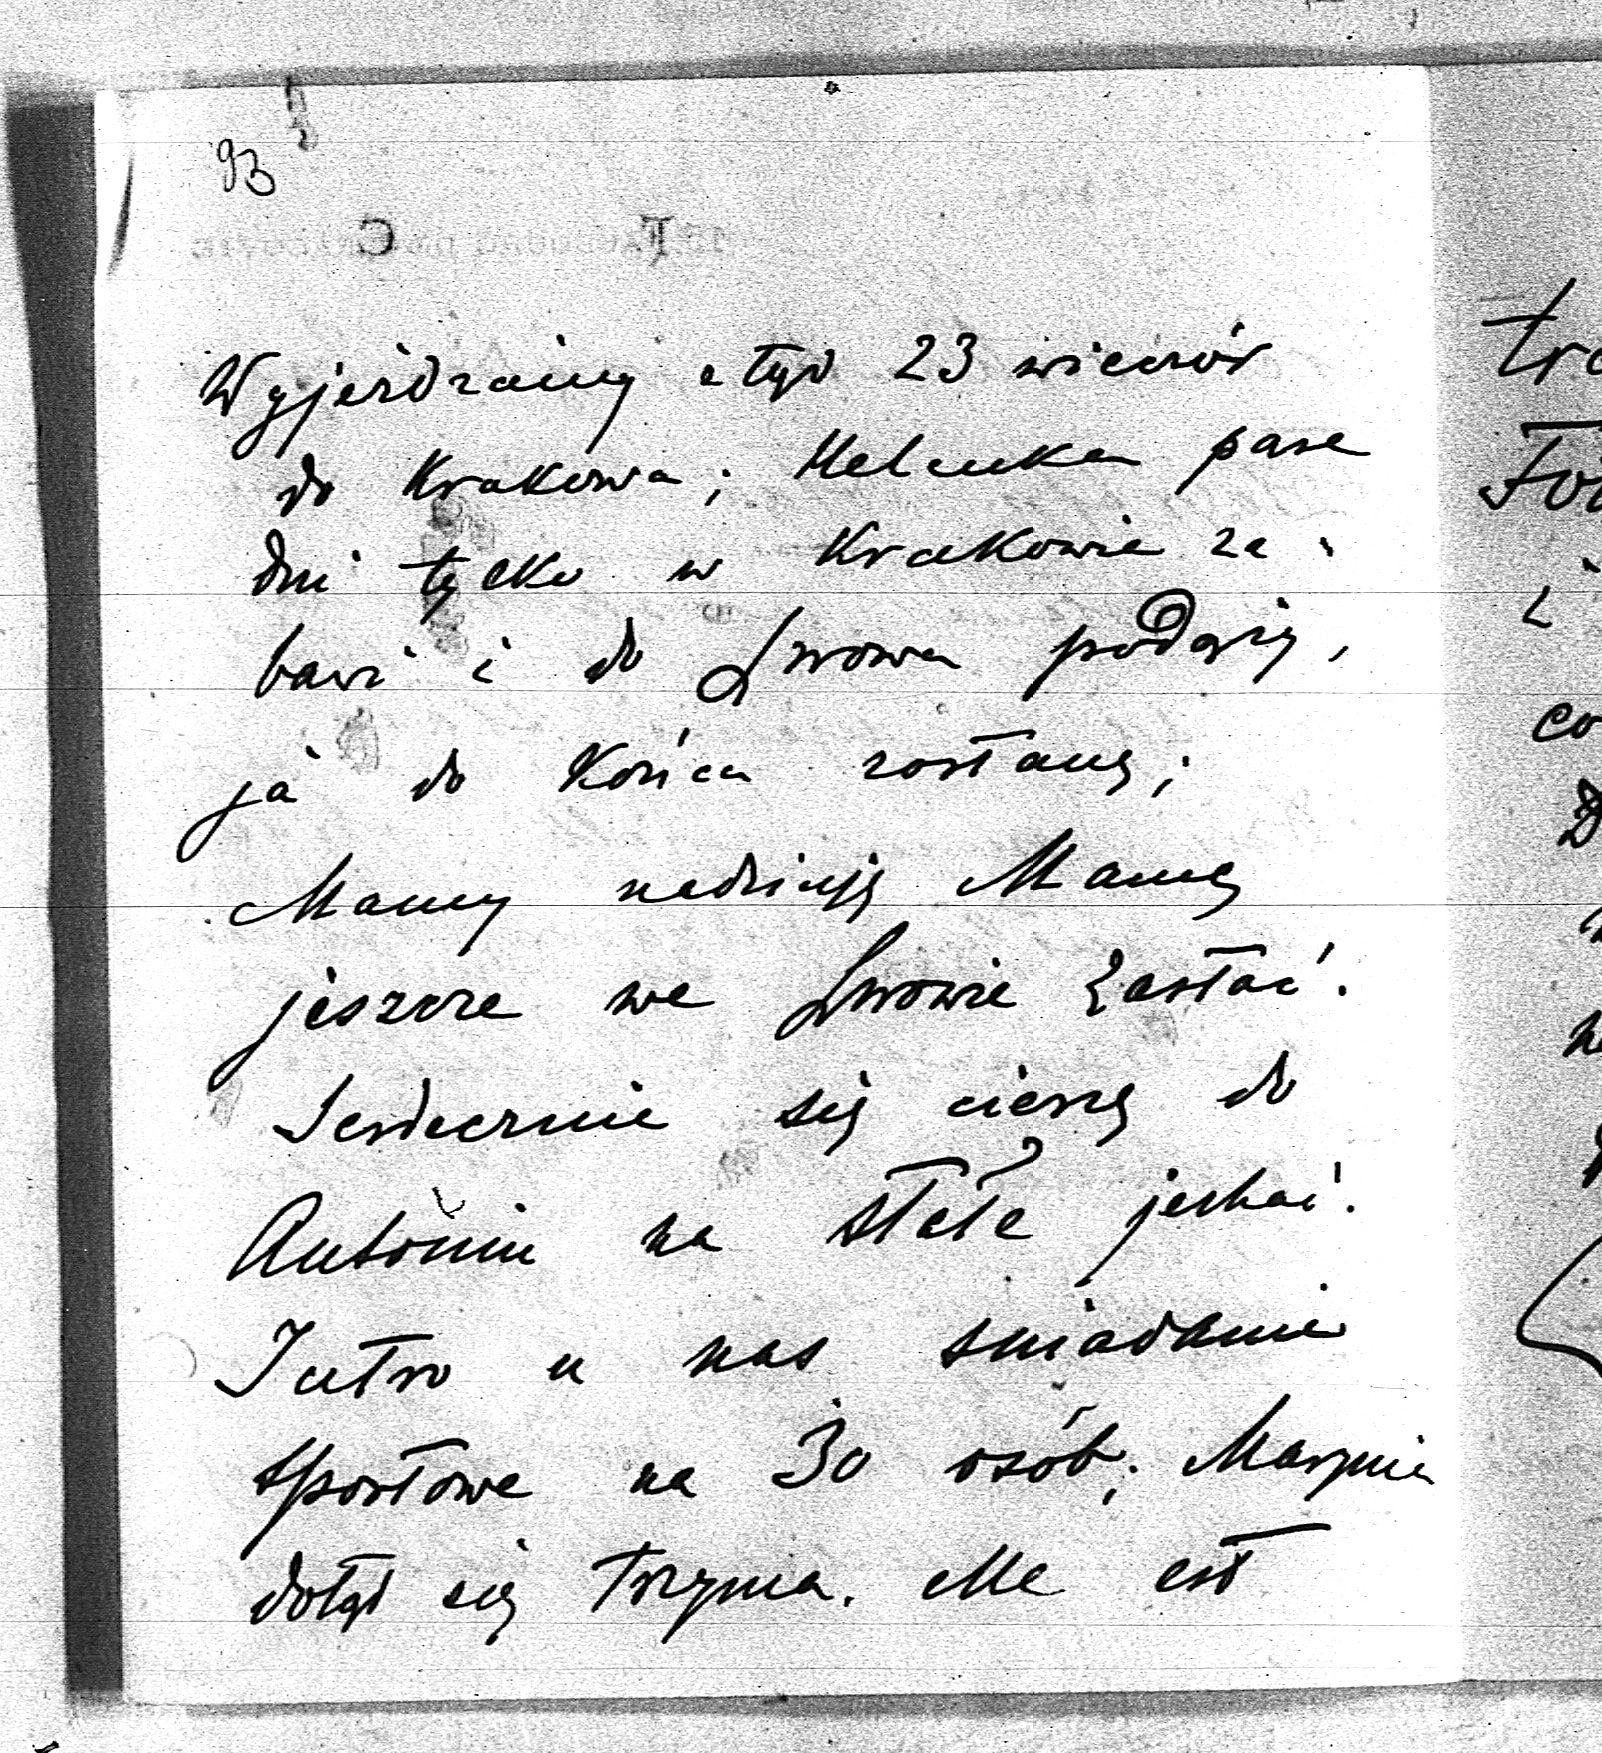 93
Wyjeżdżamy stąd 23 wieczór
do Krakowa; Helenka parę
dni tylko w Krakowie za-
bawi i do Lwowa podąży,
ja do końca zostanę;
Mamy nadzieję Mamę
jeszcze we Lwowie zastać.
Serdecznie się cieszę do
Antonin na stałe jechać.
Jutro u nas śniadanie
sportowe na 30 osób; Marynia
dotąd się trzyma. Me